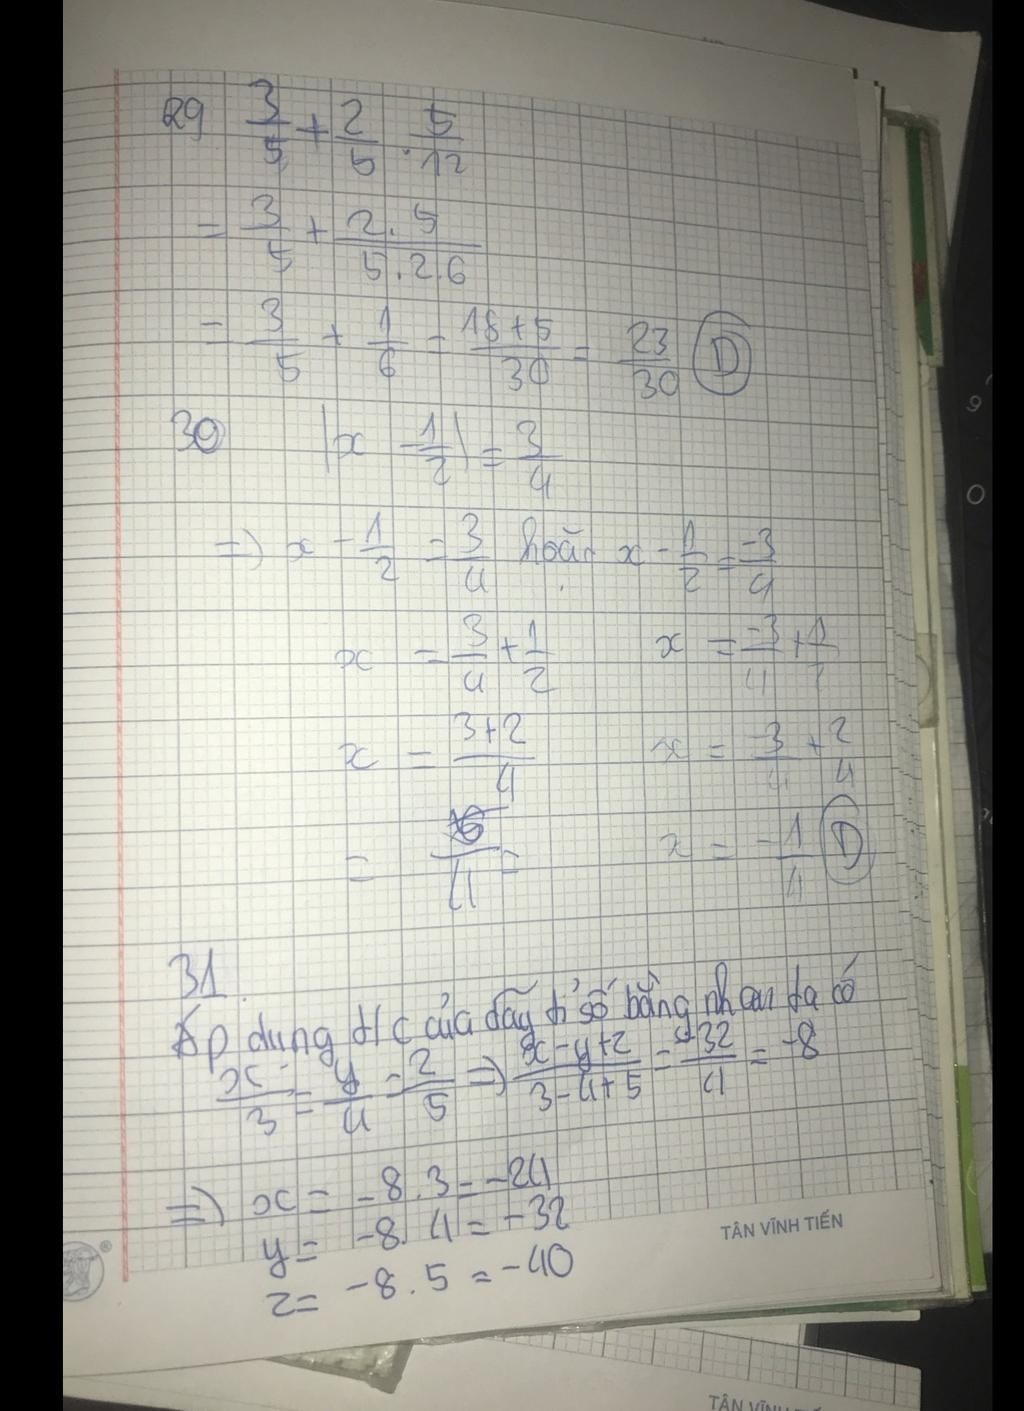 29 3/5 + 2/5 . 5/12
= 3/5 + 2.5/5.2.6
= 3/5 + 1/6 = 18+5/30 = 23/30 D
30 |x - 1/2| = 3/4
=> x - 1/2 = 3/4 hoặc x - 1/2 = -3/4
x = 3/4 + 1/2 x = -3/4 + 1/2
x = 3+2/4 x = -3/4 + 2/4
= /4 = x = -1/4 D
31.
Áp dụng t/c của dãy tỉ số bằng nhau ta có
x/3 = y/4 = z/5 => x-y+z/3-4+5 = -32/4 = -8
=> x = -8.3 = -24
y = -8.4 = -32
z = -8.5 = -40
TÂN VĨNH TIẾN
®
TÂN VĨNH